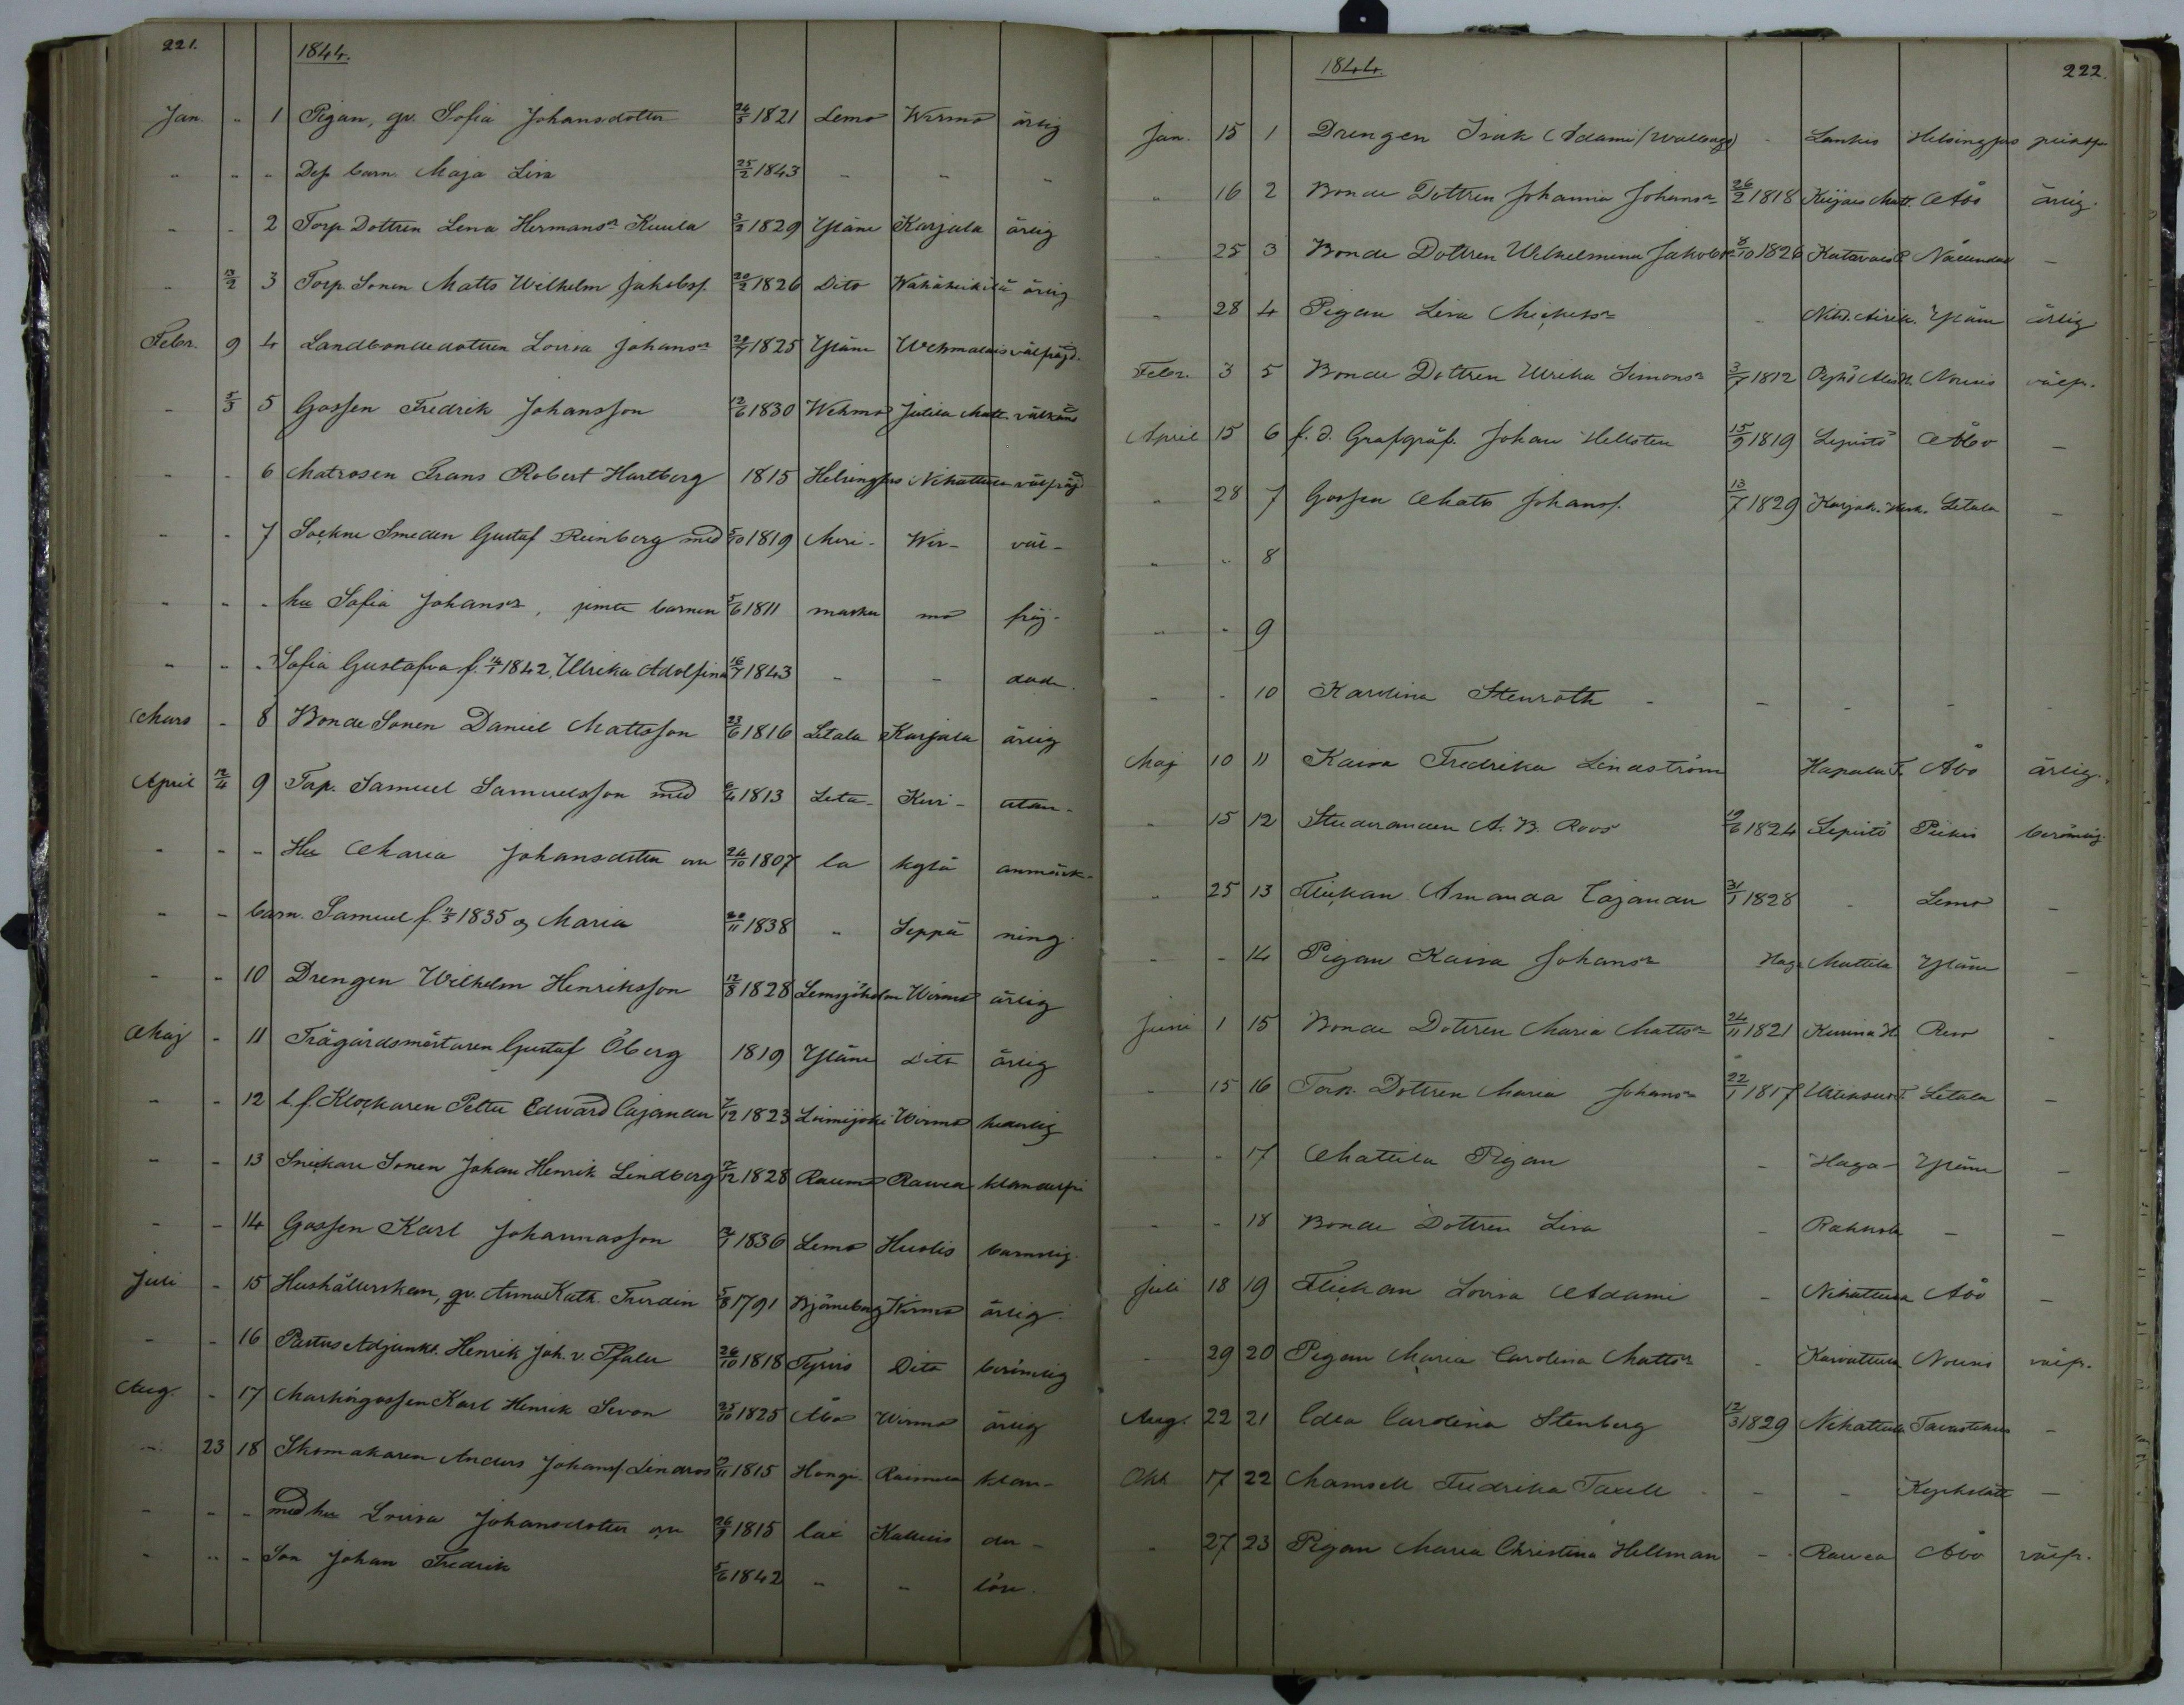 221.
1844.
Jan. " 1 Pigan, gv. Sofia Johansdotter 24/5 1821 Lemo Wirmo ärlig
" " " Des barn Maja Lisa 25/2 1843 - - -
- - 2 Torp. Dottren Lena Hermansr Kuula 3/2 1829 Yläne Karjala ärlig
- 3 Torp. Sonen Matts Wilhelm Jakobss. 20/2 1826 Dito ärlig
Febr. 9 4 Landbondedottren Lovisa Johansr 20/7 1825 Yläne Wehmalais välfräjd.
- 5/3 5 Gossen Fredrik Johansson 12/6 1830 Wehmo Julila Matt. välkänd
- - 6 Matrosen Frans Robert Hartberg 1815 Helsingfors Nihattula välfräjd
- - 7 Sockne Smeden Gustaf Reinberg med 5/10 1819 Meri- Wir- väl-
- - - hu Sofia Johansr, jemte barnen 5/6 1811 masku mo fräj-
- - - Sofia Gustafva f. 1842, Ulrika Adolfina 16/7 1843 - - dade.
Mars - 8 Bonde Sonen Daniel Mattsson 23/6 1816 Letala Karjala ärlig
April 12/4 9 Torp. Samuel Samuelsson med 6/4 1813 Leta- Kur- utan-
- - - Hu Maria Johansdotter 24/10 1807 la kylä anmärk-
- - barn. Samuel f. 1835 o Maria 20/11 1838 " Seppä ning.
- - 10 Drengen Wilhelm Henriksson 12/8 1828 Lemsjöholm Wirmo ärlig
Maj - 11 Trägårdsmästaren Gustaf Öberg 1819 Yläne Dito ärlig
- - 12 t. f. Klockaren Petter Edward Cajander 7/12 1823 Loimijoki Wirmo hederlig
- - 13 Snickare Sonen Johan Henrik Lindberg 7/12 1828 Raumo Rauvea klanderfri
- - 14 Gossen Karl Johannasson 1836 Lemo Huolis barnslig.
Juli - 15 Hushållerskan, gv. Anna Kath. Turdin 5/8 1791 Björneborg Wirmo ärlig.
- - 16 Pastors Adjunkt. Henrik Joh. v. Pfaler 26/10 1818 Tyrvis Dito berömlig
Aug. - 17 Karl Henrik Sevon 25/10 1825 Åbo Wirmo ärlig
- 23 18 Skomakaren Anders Johanss. Lindros 1815 Hongi- Raimela klan-
- - - med hu Lovisa Johansdotter 26/9 1815 lax Kalluis der-
- - - Son Johan Fredrik 5/6 1842 " " lös.
1844.
222.
Jan. 15 1 Drengen Isak (Adami/Wallberg) - Lankis Helsingfors
" 16 2 Bonde Dottren Johanna Johansr 26/2 1818 Åbo ärlig.
25 3 Bonde Dottren Wilhelmina Jakobsr 8/10 1826 Nådendal -
" 28 4 Pigan Lisa Michelsr - Yläne ärlig
Febr. 3 5 Bonde Dottren Ulrika Simonsr 3/7 1812 Nousis välfr.
April 15 6 f. d. Johan Hellsten 15/9 1819 Lepistö Åbo -
" 28 7 Gossen Matts Johanss. 13/7 1829 Letala -
" " 8
" " 9
- - 10 Karolina Stenroth - - - - -
Maj 10 11 Kaisa Fredrika Lindström Hapala T. Åbo ärlig.
" 15 12 Studeranden A. B. Roos 19/6 1824 Lepistö Piikis berömlig.
" 25 13 Flickan Amanda Cajander 31/1 1828 - Lemo -
- - 14 Pigan Kaisa Johansr Haga Mattila Yläne -
Juni 1 15 Bonde Dottren Maria Mattsr 24/11 1821 Kunina H. Reso -
- 15 16 Torp. Dottren Maria Johansr 22/1 1817 Letala -
- - 17 Mattila Pigan - Haga- Yläne -
- - 18 Bonde Dottren Lisa - Rahkola - -
Juli 18 19 Flickan Lovisa Adami - Nihattula Åbo -
- 29 20 Pigan Maria Carolina Mattsr - Karvattula Nousis välfr.
Aug. 22 21 Edla Carolina Stenberg 12/3 1829 Nihattula Tavastehus -
Okt 17 22 Mamsell Fredrika Taxell - - Kyrkslätt -
" 27 23 Pigan Maria Christina Hellman - Rauvea Åbo välfr.